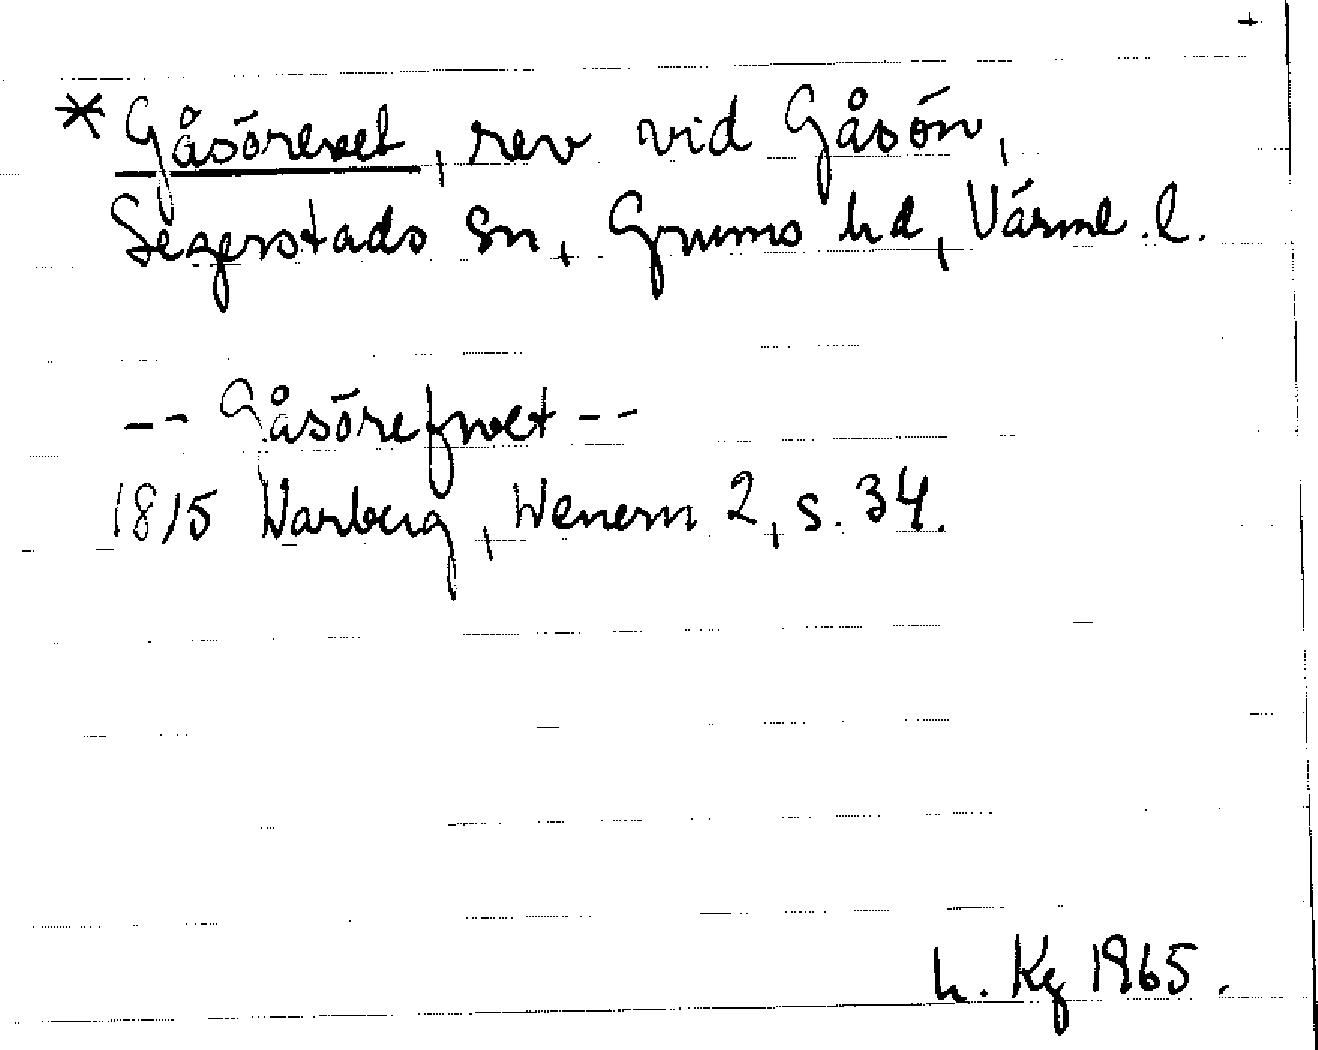 +
* Gåsörevet, rev vid Gåsön,
Segerstads sn, Grums hd, Värml. l.
-- Gåsörefwet --
1815 Warberg, Wenern 2, s. 34.
h. Kg 1965.